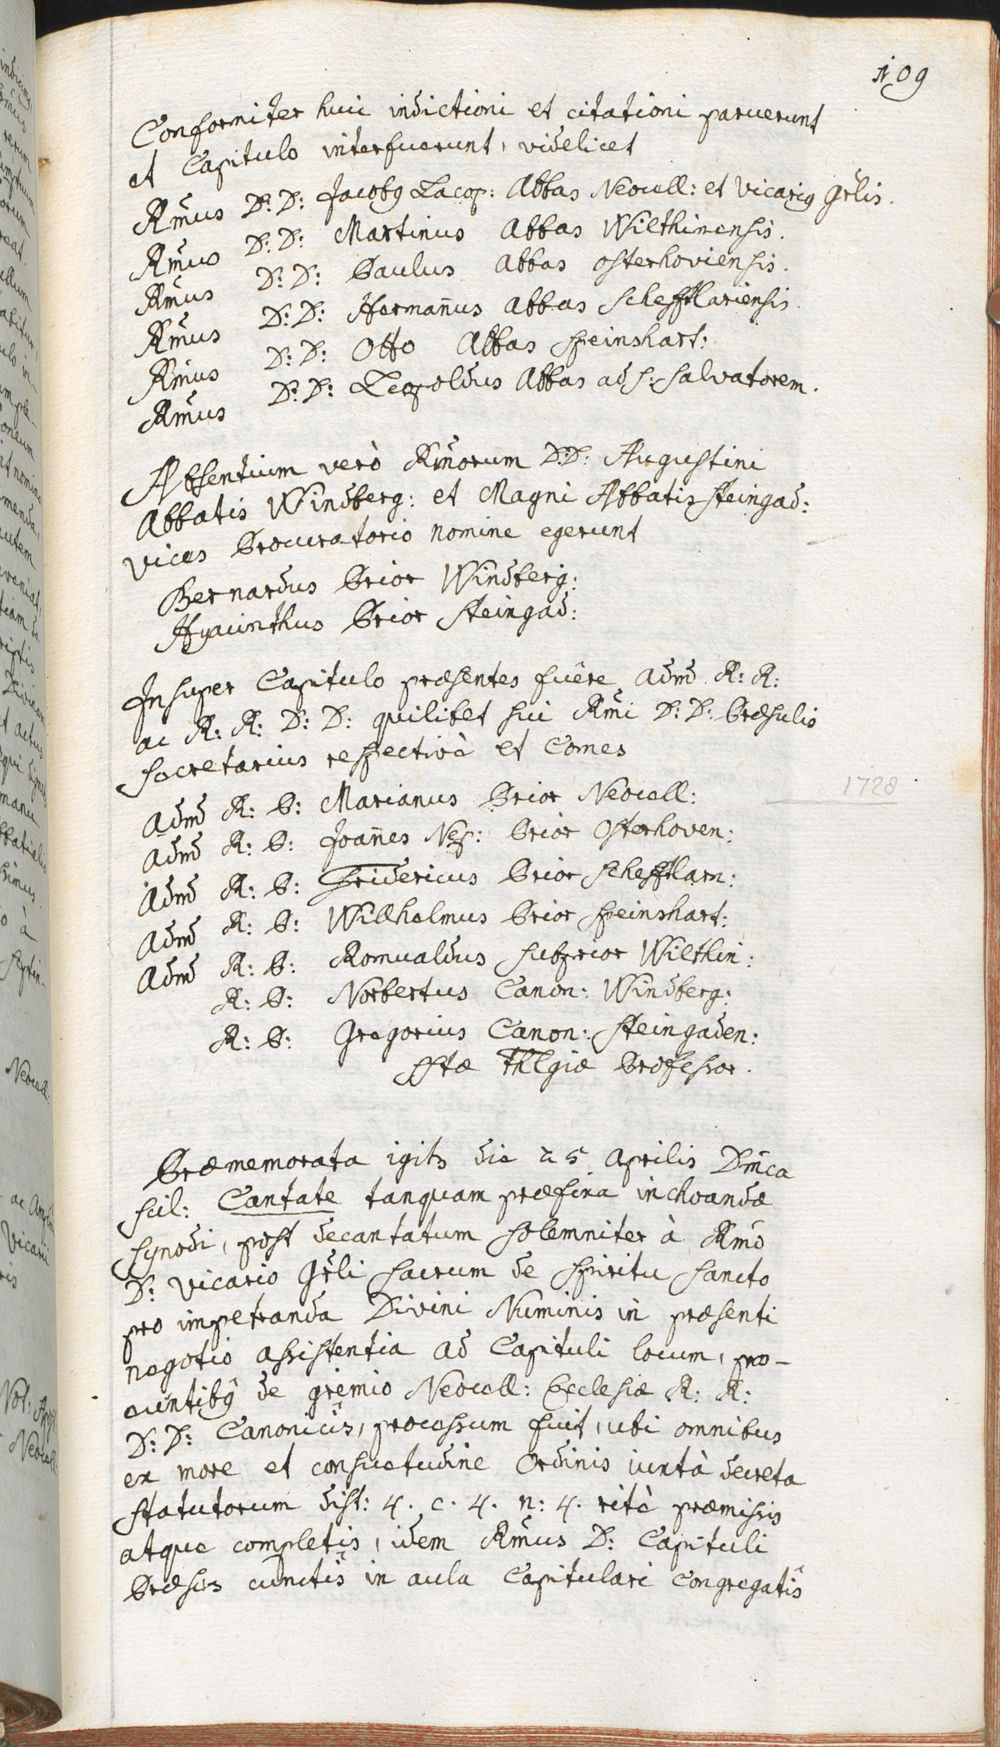 109
Conformiter huic indictioni et citationi paruerunt
et Capitulo interfuerunt, videlicet
Rm̃us D: D: Jacobꝰ Lacop: Abbas Neocell: et vicariꝰ Gr̃lis.
Rm̃us D: D: Martinus Abbas Wilthinensis.
Rm̃us D: D: Paulus Abbas Osterhoviensis.
Rm̃us D: D: Herman̄us Abbas Schefftlariensis.
Rm̃us D: D: Otto Abbas Speinshart:
Rm̃us D: D: Leopoldus Abbas ad S: Salvatorem.
Absentium verò Rm̃orum D: D: Augustini
Abbatis Windberg: et Magni Abbatis Steingad:
vices Procuratorio nomine egerunt
Bernardus Prior Windberg:
Hyacinthus Prior Steingad:
Insuper Capitulo præsentes fuêre Adm̃ R: R:
ac R: R: D: D: quilibet sui Rm̃i D: D: Præsulis
secretarius respectivè et Comes
Adm̃ R: P: Marianus Prior Neocell:
1728
Adm̃ R: P: Joan̄es Nep: Prior Osterhoven:
Adm̃ R: P: Fridericus Prior Schefftlarn:
Adm̃ R: P: Willhelmus Prior Speinshart:
Adm̃ R: P: Romualdus subprior Wilthin:
R: P: Norbertus Canon: Windberg:
R: P: Gregorius Canon: Steingaden:
SStæ Thlgiæ Professor.
Præmemorata igitꝛ die 25 Aprilis Dm̃ca
scil: Cantate tanquam præfixa inchoandæ
synodi, post decantatum solemniter à Rm̃o
D: vicario Gr̃li sacrum de Spiritu Sancto
pro impetranda Divini Numinis in præsenti
negotio assistentia ad Capituli locum, præ-
euntibꝰ de gremio Neocell: Ecclesiæ R: R:
D: D: Canonicis, processum fuit, ubi omnibus
ex more et consuetudine Ordinis iuxtà decreta
statutorum dist: 4. c. 4. n: 4. ritè præmissis
atque completis, idem Rm̃us D: Capituli
Præses cunctis in aula Capitulari Congregatis